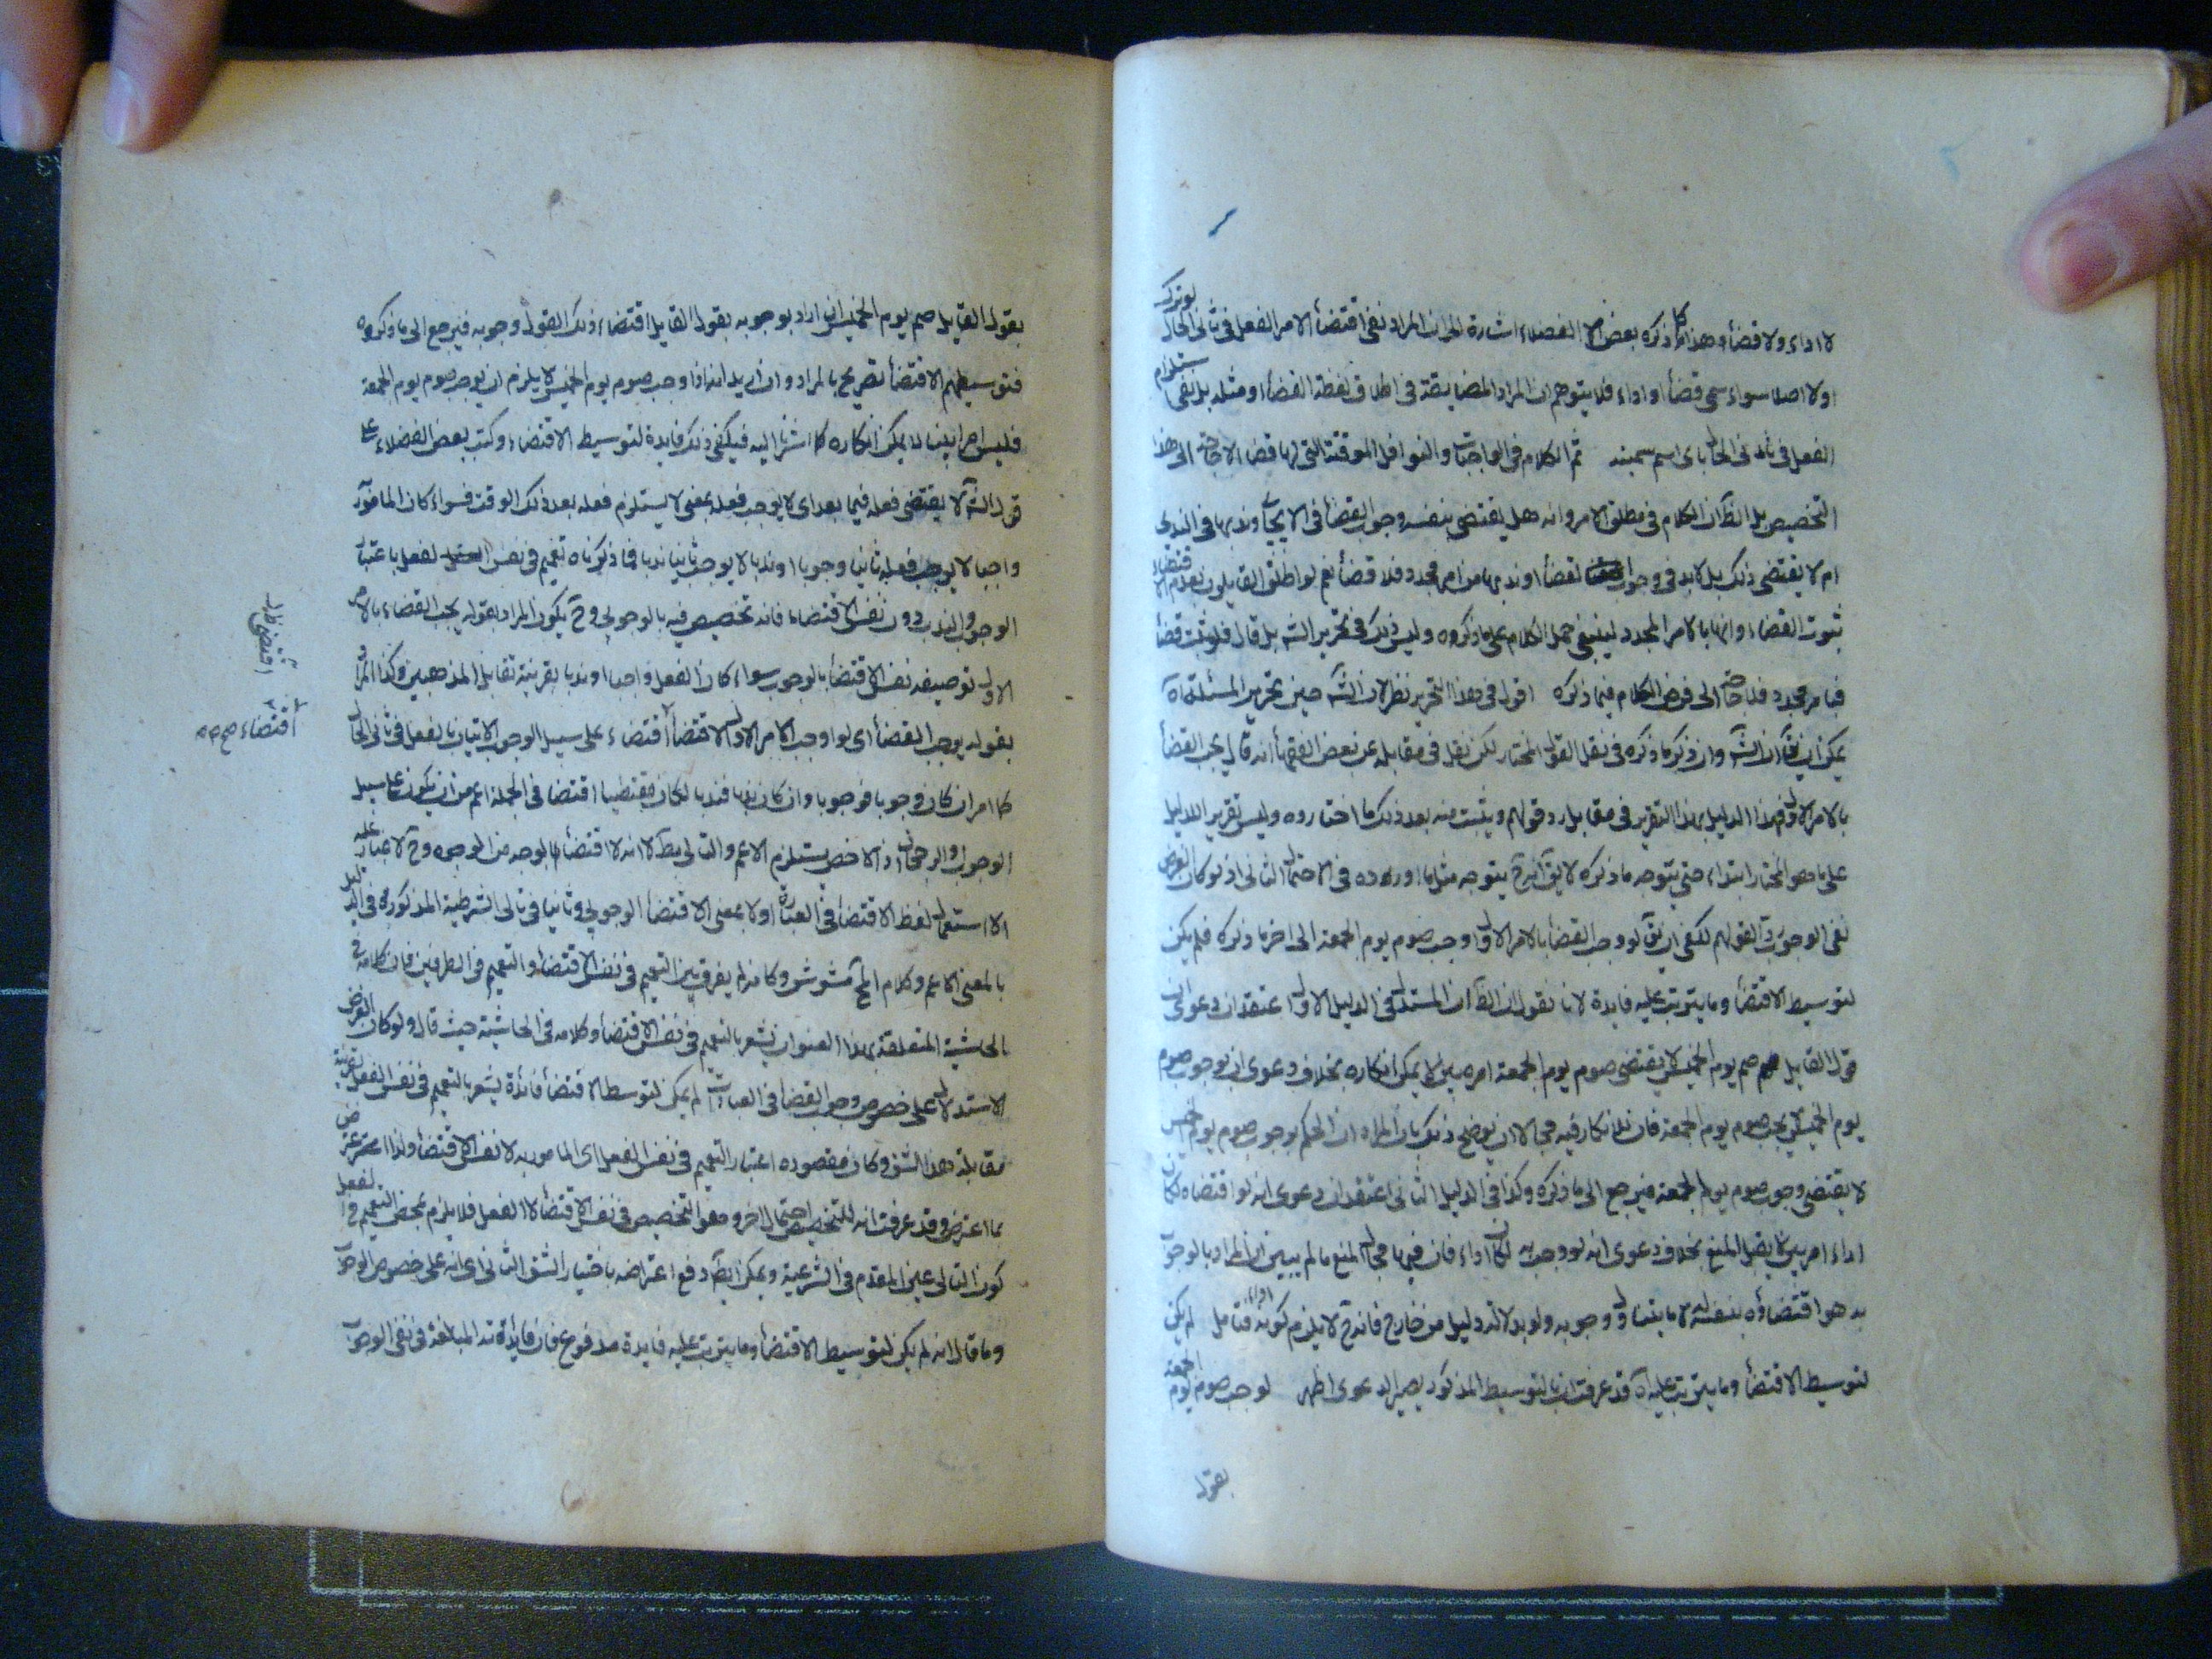 لا اداء ولا قضاء وهذا كما ذكره بعض الفضلاء اشارة الى ان المراد نفى اقتضاء الامر الفعل فى ثانى الحال لو ترك
اولا اصلا سواء سمى قضاء او اداء فلا يتوهم ان المراد المضايقة فى اطلاق لفظة القضاء او مثله بل نفى استلزام
الفعل فى ثانى الحال باى اسم سميته ثم الكلام فى الواجبات والنوافل الموقتة التى لها قضاء لا حاجة الى هذا
التخصيص بل الظ ان الكلام فى مطلق الامر وانه هل يقتضى بنفسه وجوب القضاء فى الايجاب وندبها فى الندبى
ام لا يقتضى ذلك بل لابد فى وجوب القضاء او ندبها من امر مجدد فلا قضاء نعم لو اطلق القايلون بعدم الاقتضاء
ثبوت القضاء وانها بالامر المجدد لينبغى حمل الكلام على ما ذكروه وليس ذلك فى تحرير الش بل قال فلو ثبت قضاء
فبامر مجدد فلا حاجة الى فرض الكلام فيما ذكره اقول فى هذا التحرير نظر لان الش حين تحرير المسئلة اه
يمكن ان يق ان الش وان ذكر ما ذكره فى نقل القول المختار لكن نقل فى مقابله عن بعض الفقهاء انه قال يجب القضاء
بالامر الاول فهذا الدليل بهذا التقرير فى مقابل رد قولهم ويثبت منه بعد ذلك ما اختاروه وليس تقرير الدليل
على ما هو المختار ابتداء حتى يتوجه ما ذكره لا يق انه ح يتوجه مثل ما اورده فى الاحتمال الثانى اذ لو كان الغرض
نفى الوجوب رد القولهم لكفى ان يق لو وجب القضاء بالامر الاول اوجب صوم يوم الجمعة الى اخر ما ذكره فلم يكن
لتوسيط الاقتضاء وما يترتب عليه فايدة لانا نقول ان الظ ان المستدل فى الدليل الاول اعتقد ان دعوى ان
قول القايل صم يوم الخميس لا يقتضى صوم يوم الجمعة امر بين لا يمكن انكاره بخلاف دعوى ان بوجوب صوم
يوم الخميس لا يجب صوم يوم الجمعة فان للانكار فيه مجالا ان يوضح ذلك بان المراد ان الحكم بوجوب صوم يوم الخميس
لا يقتضى وجوب صوم يوم الجمعة فيرجع الى ما ذكره وكذا فى الدليل الثانى اعتقد ان دعوى انه لو اقتضاه لكان
اداء امر بين لا يقبل المنع بخلاف دعوى انه لو وجب به لكان اداء فان فيها مجال المنع ما لم يبين ان المراد بالوجوب
به هو اقتضاؤه بنفسه لا ما يتناول وجوبه ولو بدلالة دليل من خارج فانه ح لا يلزم كونه اداء فتامل لم يكن
لتوسيط الاقتضاء وما يترتب عليه اه قد عرفت ان بالتوسيط المذكور يصير الدعوى اظهر لوجب صوم يوم الجمعة
بقول
بقول القايل صم يوم الخميس ان اراد بوجوبه بقول القايل اقتضاء ذلك القول وجوبه فيرجع الى ما ذكروه
فتوسيطهم الاقتضاء تصريح بالمراد وان اريد انه اذا وجب صوم يوم الخميس لا يلزم ان يوجب صوم يوم الجمعة
فليس امرا بينا لا يمكن انكاره كما اشرنا اليه فيكفى ذلك فايدة لتوسيط الاقتضاء وكتب بعض الفضلاء على
قول الش لا يقتضى فعله فيما بعد اى لا يوجب فعله بمعنى لا يستلزم فعله بعد ذلك الوقت فسواء كان المامور به
واجبا لا يوجب فعله ثانيا وجوبا او ندبا لا يوجب ثانيا ندبا فما ذكرناه تعميم فى نفس الفعل باعتبار
الوجوب والندب دون نفس الاقتضاء فانه تخصيص فيه بالوجوبى وح يكون المراد بقوله يجب القضاء بالامر
الاول توصيف نفس الاقتضاء بالوجوب سواء كان الفعل واجبا او ندبا بقرينة تقابل المذهبين وكذا المراد
بقوله يوجب القضاء اى لو اوجب الامر الاول الاقتضاء اقتضاء على سبيل الوجوب الاتيان بالفعل فى ثانى الحال
كما مر ان كان وجوبا فوجوبا وان كان ندبا فندبا لكان مقتضيا اقتضاء فى الجملة اعم من ان يكون على سبيل
الوجوب او الرجحان اذ الاخص يستلزم الاعم والتالى بط لانه لا اقتضاء له بوجه من الوجوه وح لا غبار عليه
الا استعمال لفظ الاقتضاء فى العبارة اولا بمعنى الاقتضاء الوجوبى وثانيا فى تالى الشرطية المذكورة فى الدليل
بالمعنى الاعم وكلام المح مشوش وكانه لم يفرق بين التعميم فى نفس الاقتضاء والتعميم فى الطرفين فان كلامه فى
الحاشية المتعلقة بهذا العنوان يشعر بالتعميم فى نفس الاقتضاء وكلامه فى الحاشية حيث قال ولو كان الغرض
الاستدلال على خصوص وجوب القضاء فى العبارات لم يكن لتوسط الاقتضاء فائدة يشعر بالتعميم فى نفس الفعل بقرينة
مقابلة هذا الشق وكان مقصوده اعتبار التعميم فى نفس الفعل اى المامور به لا نفس الاقتضاء ولذا اعترض
بما اعترض وقد عرفت انه للتخصيص احتمال اخر وهو التخصيص فى نفس الاقتضاء لا الفعل فلا يلزم بمحض التعميم فى الفعل
كون التالى عين المقدم فى الشرعية ويمكن ايض دفع اعتراضه باختيار الشق الثانى اى انه على خصوص الوجوب
وما قال انه لم يكن لتوسيط الاقتضاء وما يترتب عليه فايدة مدفوع فان فائدته المبالغة فى نفى الوجوب
اقتضى ظ
اقتضاء صح